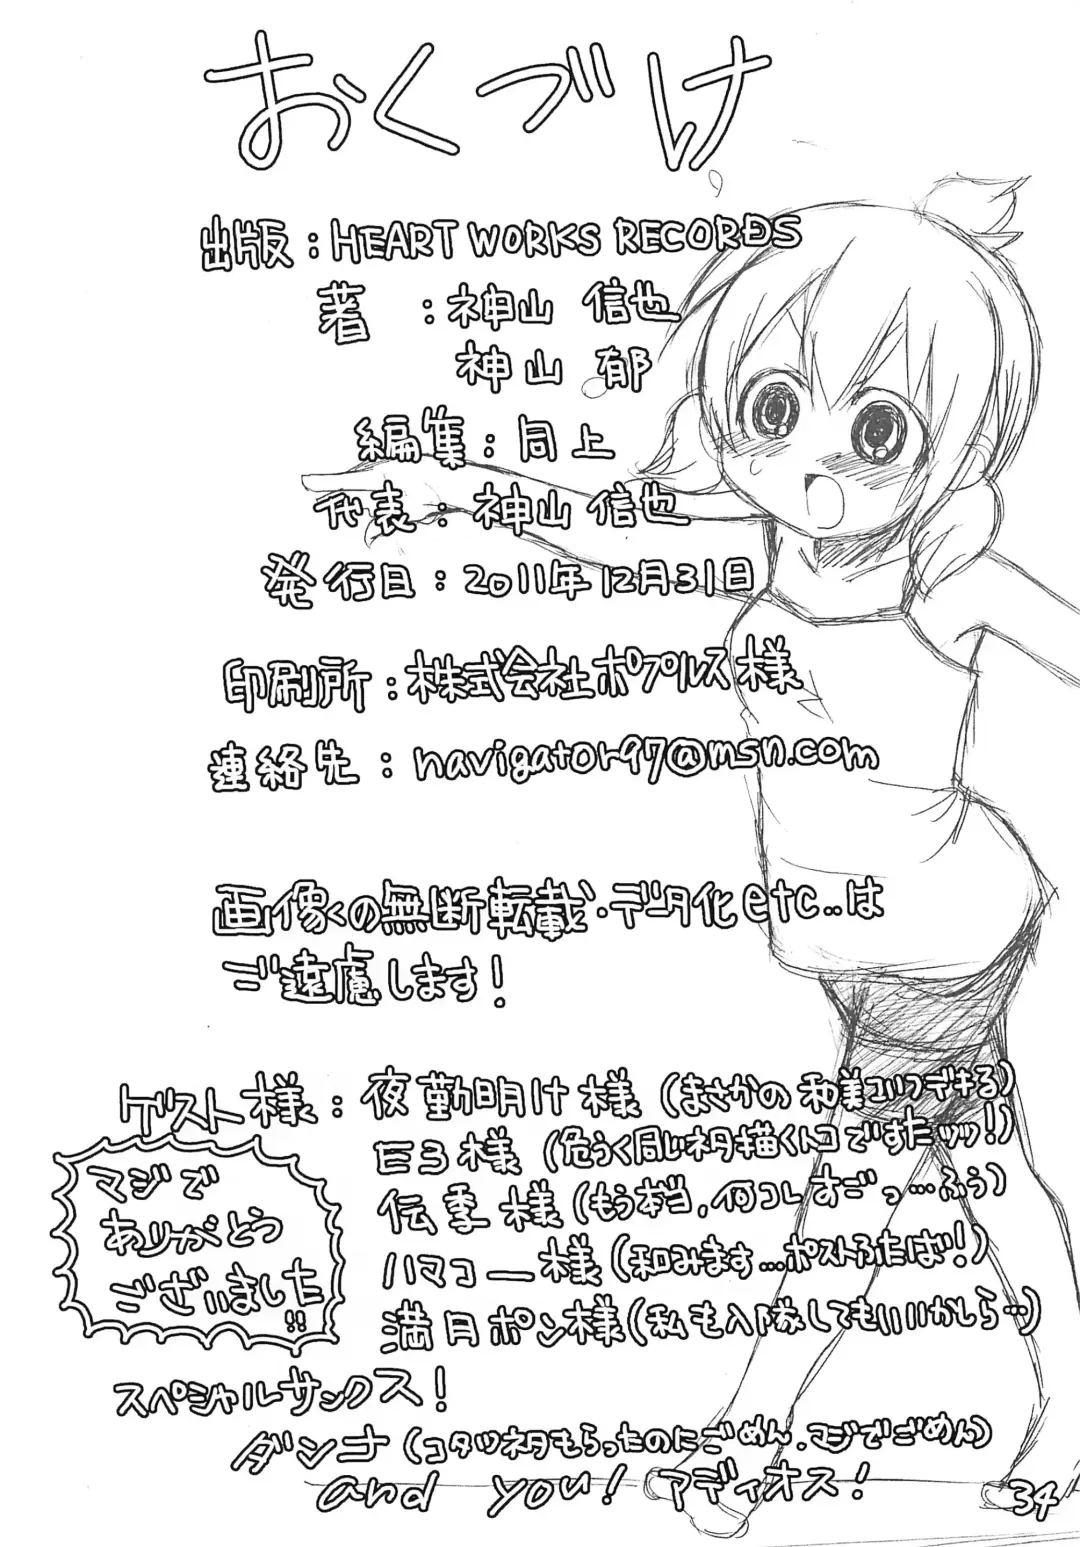 おくづけ
出版：HEART WORKS RECORDS
著：神山 信也
神山 郁
編集：同上
代表：神山 信也
発行日：2011年12月31日
印刷所：株式会社ポプルス様
連絡先：navigator97@msn.com
画像くの無断転載・データ化etc..は
ご遠慮します！
ゲスト様：夜勤明け様（まさかの 和美コいフデキる）
E3様（危うく同じネタ描くトコですたッッ！）
伝季様（もう本当、何コレすごっ…ふう）
ハマコー様（和みます…ポストふたば！）
満月ポン様（私も入隊してもいいかしら…）
マジで
ありがとう
ございました!!
スペシャルサンクス！
ダンナ（コタツネタもらったのにごめん、マジでごめん）
and you! アディオス！
34